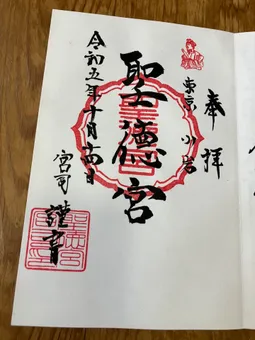 奉拝
東京 小岩
聖徳宮
令和五年十月十四日
宮司 謹書